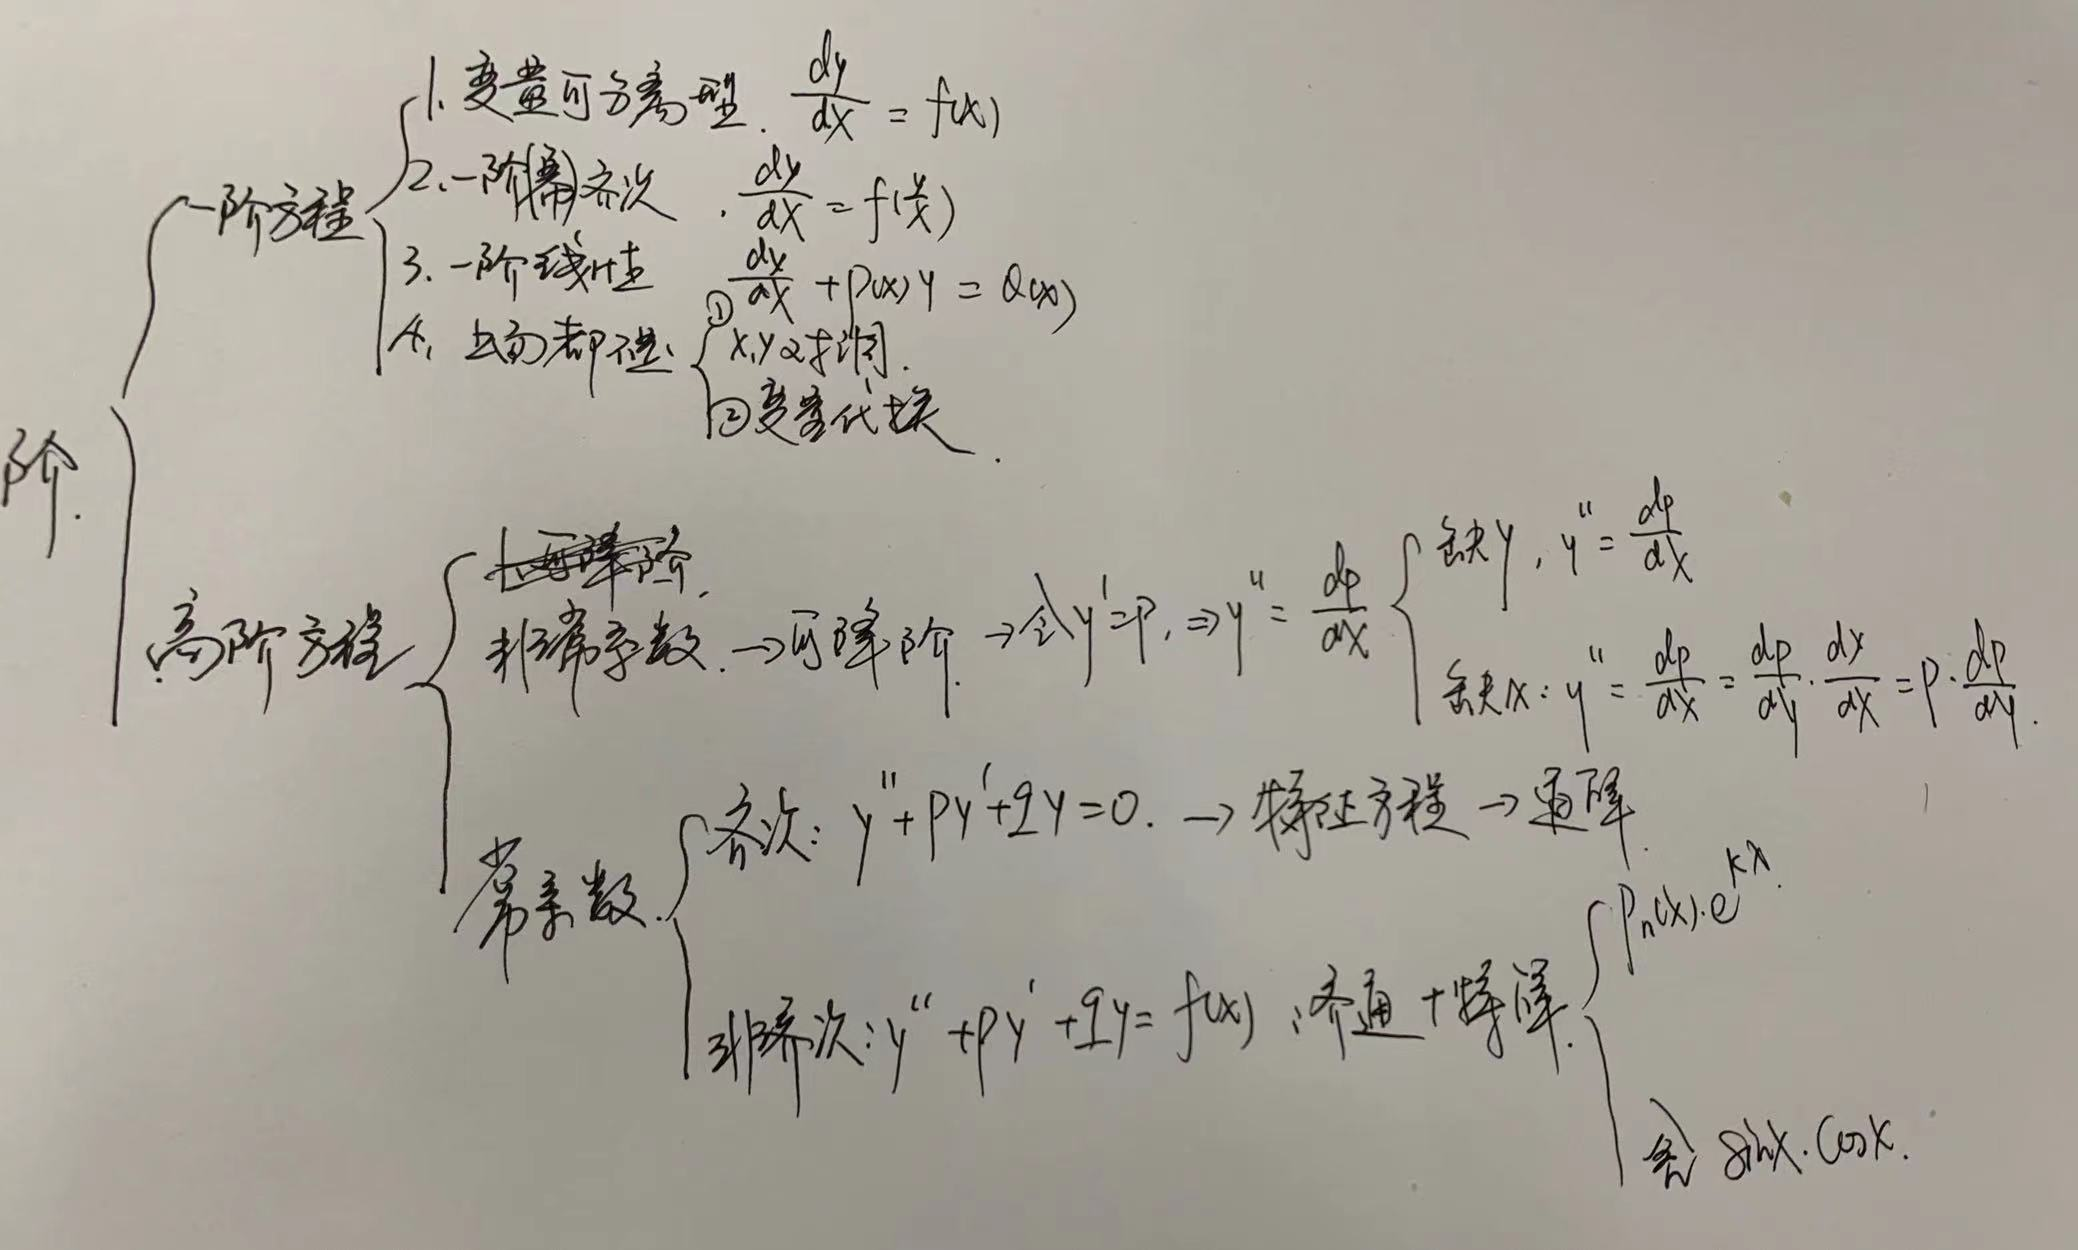 阶.
一阶方程
1. 变量可分离型. dy/dx = f(x)
2. 一阶(幂)齐次. dy/dx = f(y/x)
3. 一阶线性 dy/dx + P(x)y = Q(x)
4. 上面都不是.
① x,y对调.
② 变量代换.
高阶方程
1. 可降阶.
非常系数. → 可降阶. → 令y'=P, ⇒ y'' = dp/dx
缺y, y'' = dp/dx
缺x: y'' = dp/dx = dp/dy · dy/dx = P · dp/dy.
常系数.
齐次: y'' + py' + qy = 0. → 特征方程 → 通解.
非齐次: y'' + py' + qy = f(x), 齐通 + 特解.
Pn(x)·e^kx.
含 sinx. cosx.